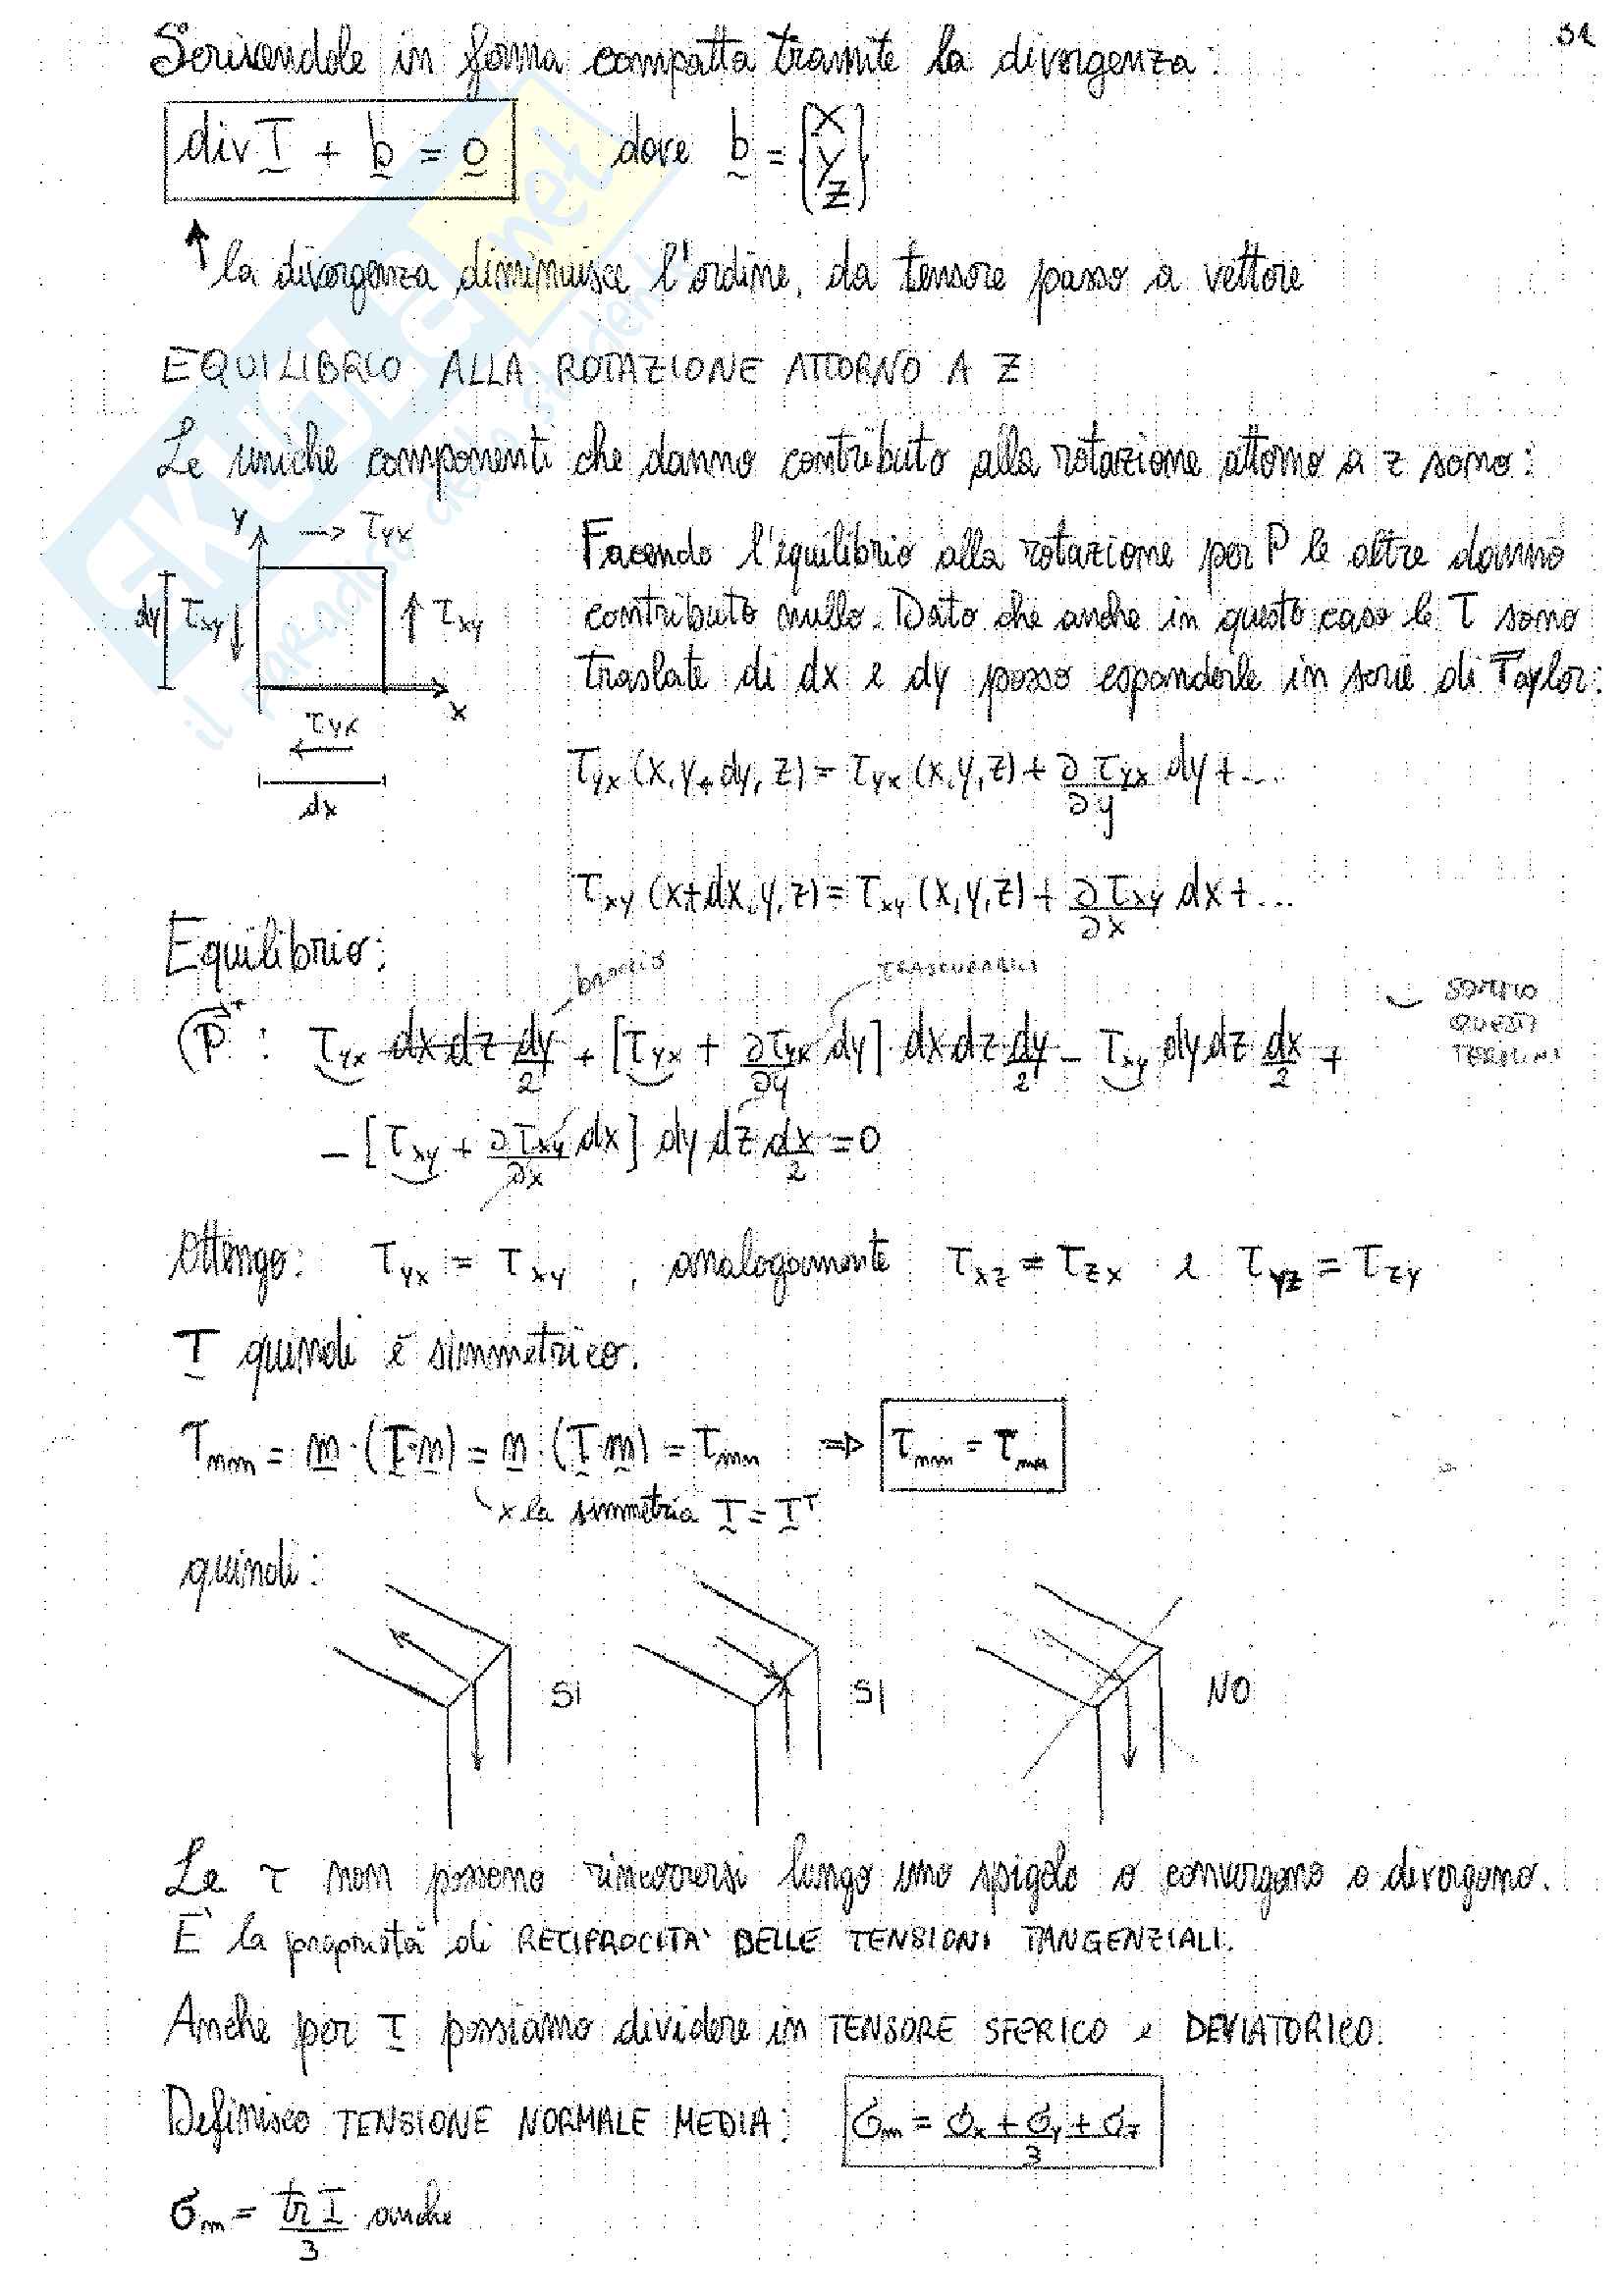 31
Scrivendole in forma compatta tramite la divergenza:
div T + b = 0 dove b = {X Y Z}
la divergenza diminuisce l'ordine, da tensore passo a vettore
EQUILIBRIO ALLA ROTAZIONE ATTORNO A Z
Le uniche componenti che danno contributo alla rotazione attorno a z sono:
y → τyx
dy τxy ↓ ↑ τxy
x
τyx
dx
Facendo l'equilibrio alla rotazione per P le altre danno
contributo nullo. Dato che anche in questo caso le τ sono
traslate di dx e dy posso espanderle in serie di Taylor:
τyx (x,y+dy,z) = τyx (x,y,z) + ∂τyx/∂y dy + ...
τxy (x+dx,y,z) = τxy (x,y,z) + ∂τxy/∂x dx + ...
Equilibrio:
braccio TRASCURABILI
SEMPLIFICO
QUESTI
TERMINI
P : τyx dx dz dy/2 + [τyx + ∂τyx/∂y dy] dx dz dy/2 - τxy dy dz dx/2 +
- [τxy + ∂τxy/∂x dx] dy dz dx/2 = 0
Ottengo: τyx = τxy , analogamente τxz = τzx e τyz = τzy
T quindi è simmetrico.
τnm = m · (T·n) = n · (T·m) = τmn ⇒ τnm = τmn
x la simmetria T = Tᵀ
quindi:
SI SI NO
Le τ non possono rincorrersi lungo uno spigolo o convergono o divergono.
È la proprietà di RECIPROCITÀ DELLE TENSIONI TANGENZIALI.
Anche per T possiamo dividere in TENSORE SFERICO e DEVIATORICO.
Definisco TENSIONE NORMALE MEDIA: σm = σx + σy + σz / 3
σm = tr T / 3 anche